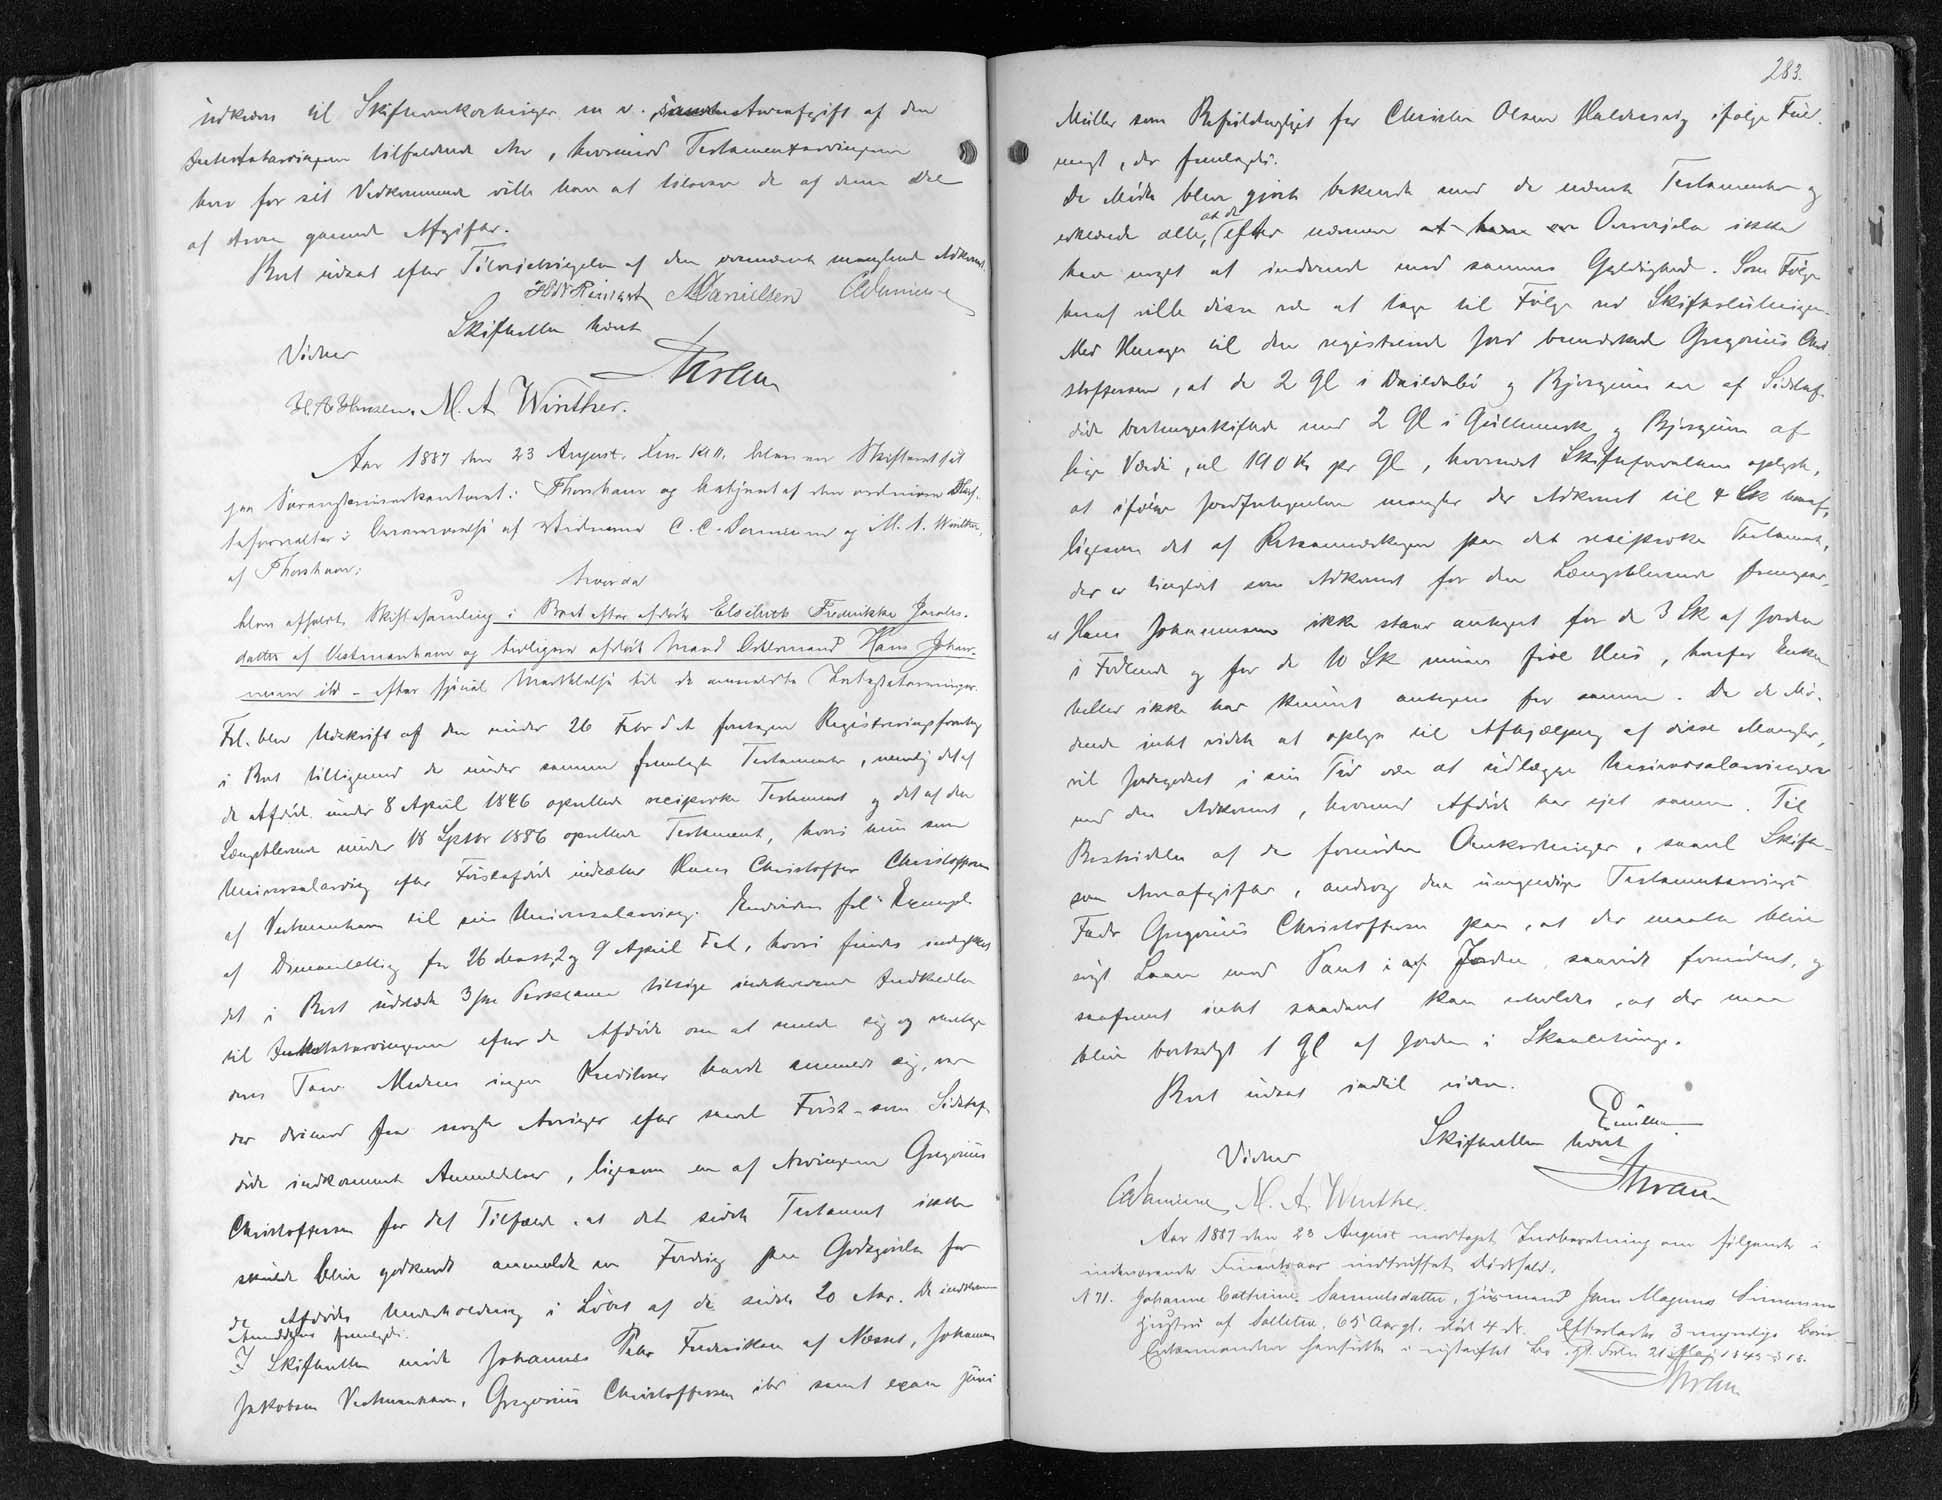 udkræves til Skifteomkostninger m v. Arveafgift af den
Intestatarvingerne tilfaldende Arv, hvorimod Testamentarvingerne
hver for sit Vedkommende ville have at tilsvare de af deres Del
af Arven gaaende Afgifter.
Boet udsat efter Tilvejebringelsen af den ovennævnte manglende Adkomst.
MDanielsen
Skifteretten hævet
Vidner
H. A. Hansen. M. A. Winther.
Aar 1887 den 23 August. Em. Kl blev en Skifteret sat
paa Sorenskriverkontoret i Thorshavn og betjent af den ordinære Skif-
teforvalter i Overværelse af Vidnerne C. C. og M. A. Winther,
af Thorshavn;
hvorda
blev afholdt Skiftesamling i Boet efter afdøde Elsebeth Frederikke Jacobs-
datter af Vestmanhavn og tidligere afdøde Mand Hans Johan-
nesen ibd - efter speciel til de anmeldte Intestatarvinger.
Frl. blev Udskrift af den under 26 Febr d A foretagne Registreringsforretning
i Boet tilligemed de under samme fremlagte Testamenter, nemlig det af
de Afdøde under 8 April 1846 oprettede reciproke Testament og det af den
Længstlevende under 18 Septbr 1886 oprettede Testament, hvori hun som
Universalarving efter Førstafdøde indsætter Hans Christoffer Christoffersen
af Vestmanhavn til sin Universalarving. Endvidere frl Exempl.
af Dimmalætting for 26 Marts, 2 og 9 April d A, hvori findes indrykket
det i Boet udstedte Proklama tillige indeholdende Indkaldelse
til Intestatarvingerne efter de Afdøde om at melde sig og vedtage
deres Tarv. Medens ingen Kreditorer havde anmeldt sig, var
der derimod fra nogle Arvinger efter saavel Først- som Sidstaf-
døde indkommet Anmeldelser, ligesom en af Arvingerne Gregorius
Christoffersen for det Tilfælde, at det sidste Testament ikke
skulde blive godkendt anmeldte en Fordring paa Godtgjørelse for
de Afdødes Underholdning i Løbet af de sidste 20 Aar. De indkomne
Anmeldelser fremlagdes.
I Skifteretten mødte Johannes Peter Frederiksen af Næsset, Johannes
Jakobsen Vestmanhavn, Gregorius Christoffersen ibd samt exam juris
283.
Müller som Befuldmægtiget for Christen Olsen Haldersvig ifølge Fuld-
magt, der fremlagdes.
De Mødte bleve gjorte bekendt med de nævnte Testamenter og
erklærede alle, at de efter nærmere Overvejelse ikke
have noget at indvende mod sammes Gyldighed. Som Følge
heraf ville disse være at tage til Følge ved Skifteslutningen.
Med Hensyn til den registrerede Jord bemærkede Gregorius Chri-
stoffersen, at de 2 Gl i og Bjørgum ere af Sidstaf-
døde bortmageskiftede med 2 Gl i og Bjørgum af
lige Værdi, al 190 Kr pr Gl, hvornæst Skifteforvalteren oplyste,
at ifølge Jordfortegnelsen mangler der Adkomst til 4 Sk heraf,
ligesom det af Retsanmærkningen paa det reciproke Testament,
der er tinglæst som Adkomst for den Længstlevende fremgaar,
at Hans Johannesen ikke staar antegnet for de 3 Sk af Jorden
i Fodlende og for de 10 Sk Hus, hvorfor Enken
heller ikke har kunnet antegnes for samme. Da de Mø-
dende intet vidste at oplyse til Afhjælpning af disse Mangler,
vil Jordegodset i sin Tid være at udlægge Universalarvingen
med den Adkomst, hvormed Afdøde har ejet samme. Til
Bestridelse af de fornødne Omkostninger, saavel Skifte-
som Arveafgifter, androg den umyndige Testamentarvings
Fader Gregorius Christoffersen paa, at der maatte blive
søgt Laan mod Pant i Jorden, saavidt fornødent, og
saafremt intet saadant kan erholdes, at der maa
blive bortsolgt 1 Gl af Jorden i
Boet udsat indtil videre.
Skifteretten hævet
Vidner
M. A. Winther.
Aar 1887 den 23 August modtaget Indberetning om følgende i
indeværende Finantsaar indtrufne Dødsfald.
N 71. Johanne Cathrine Samuelsdatter, Husmand Jens Magnus Simonsens
Hustru af Solleten. 65 Aar gl. død 4 ds. Efterladte 3 myndige Børn
Enkemanden hensidder i uskiftet Bo efter Frdn 21 Maj 1845 § 18.